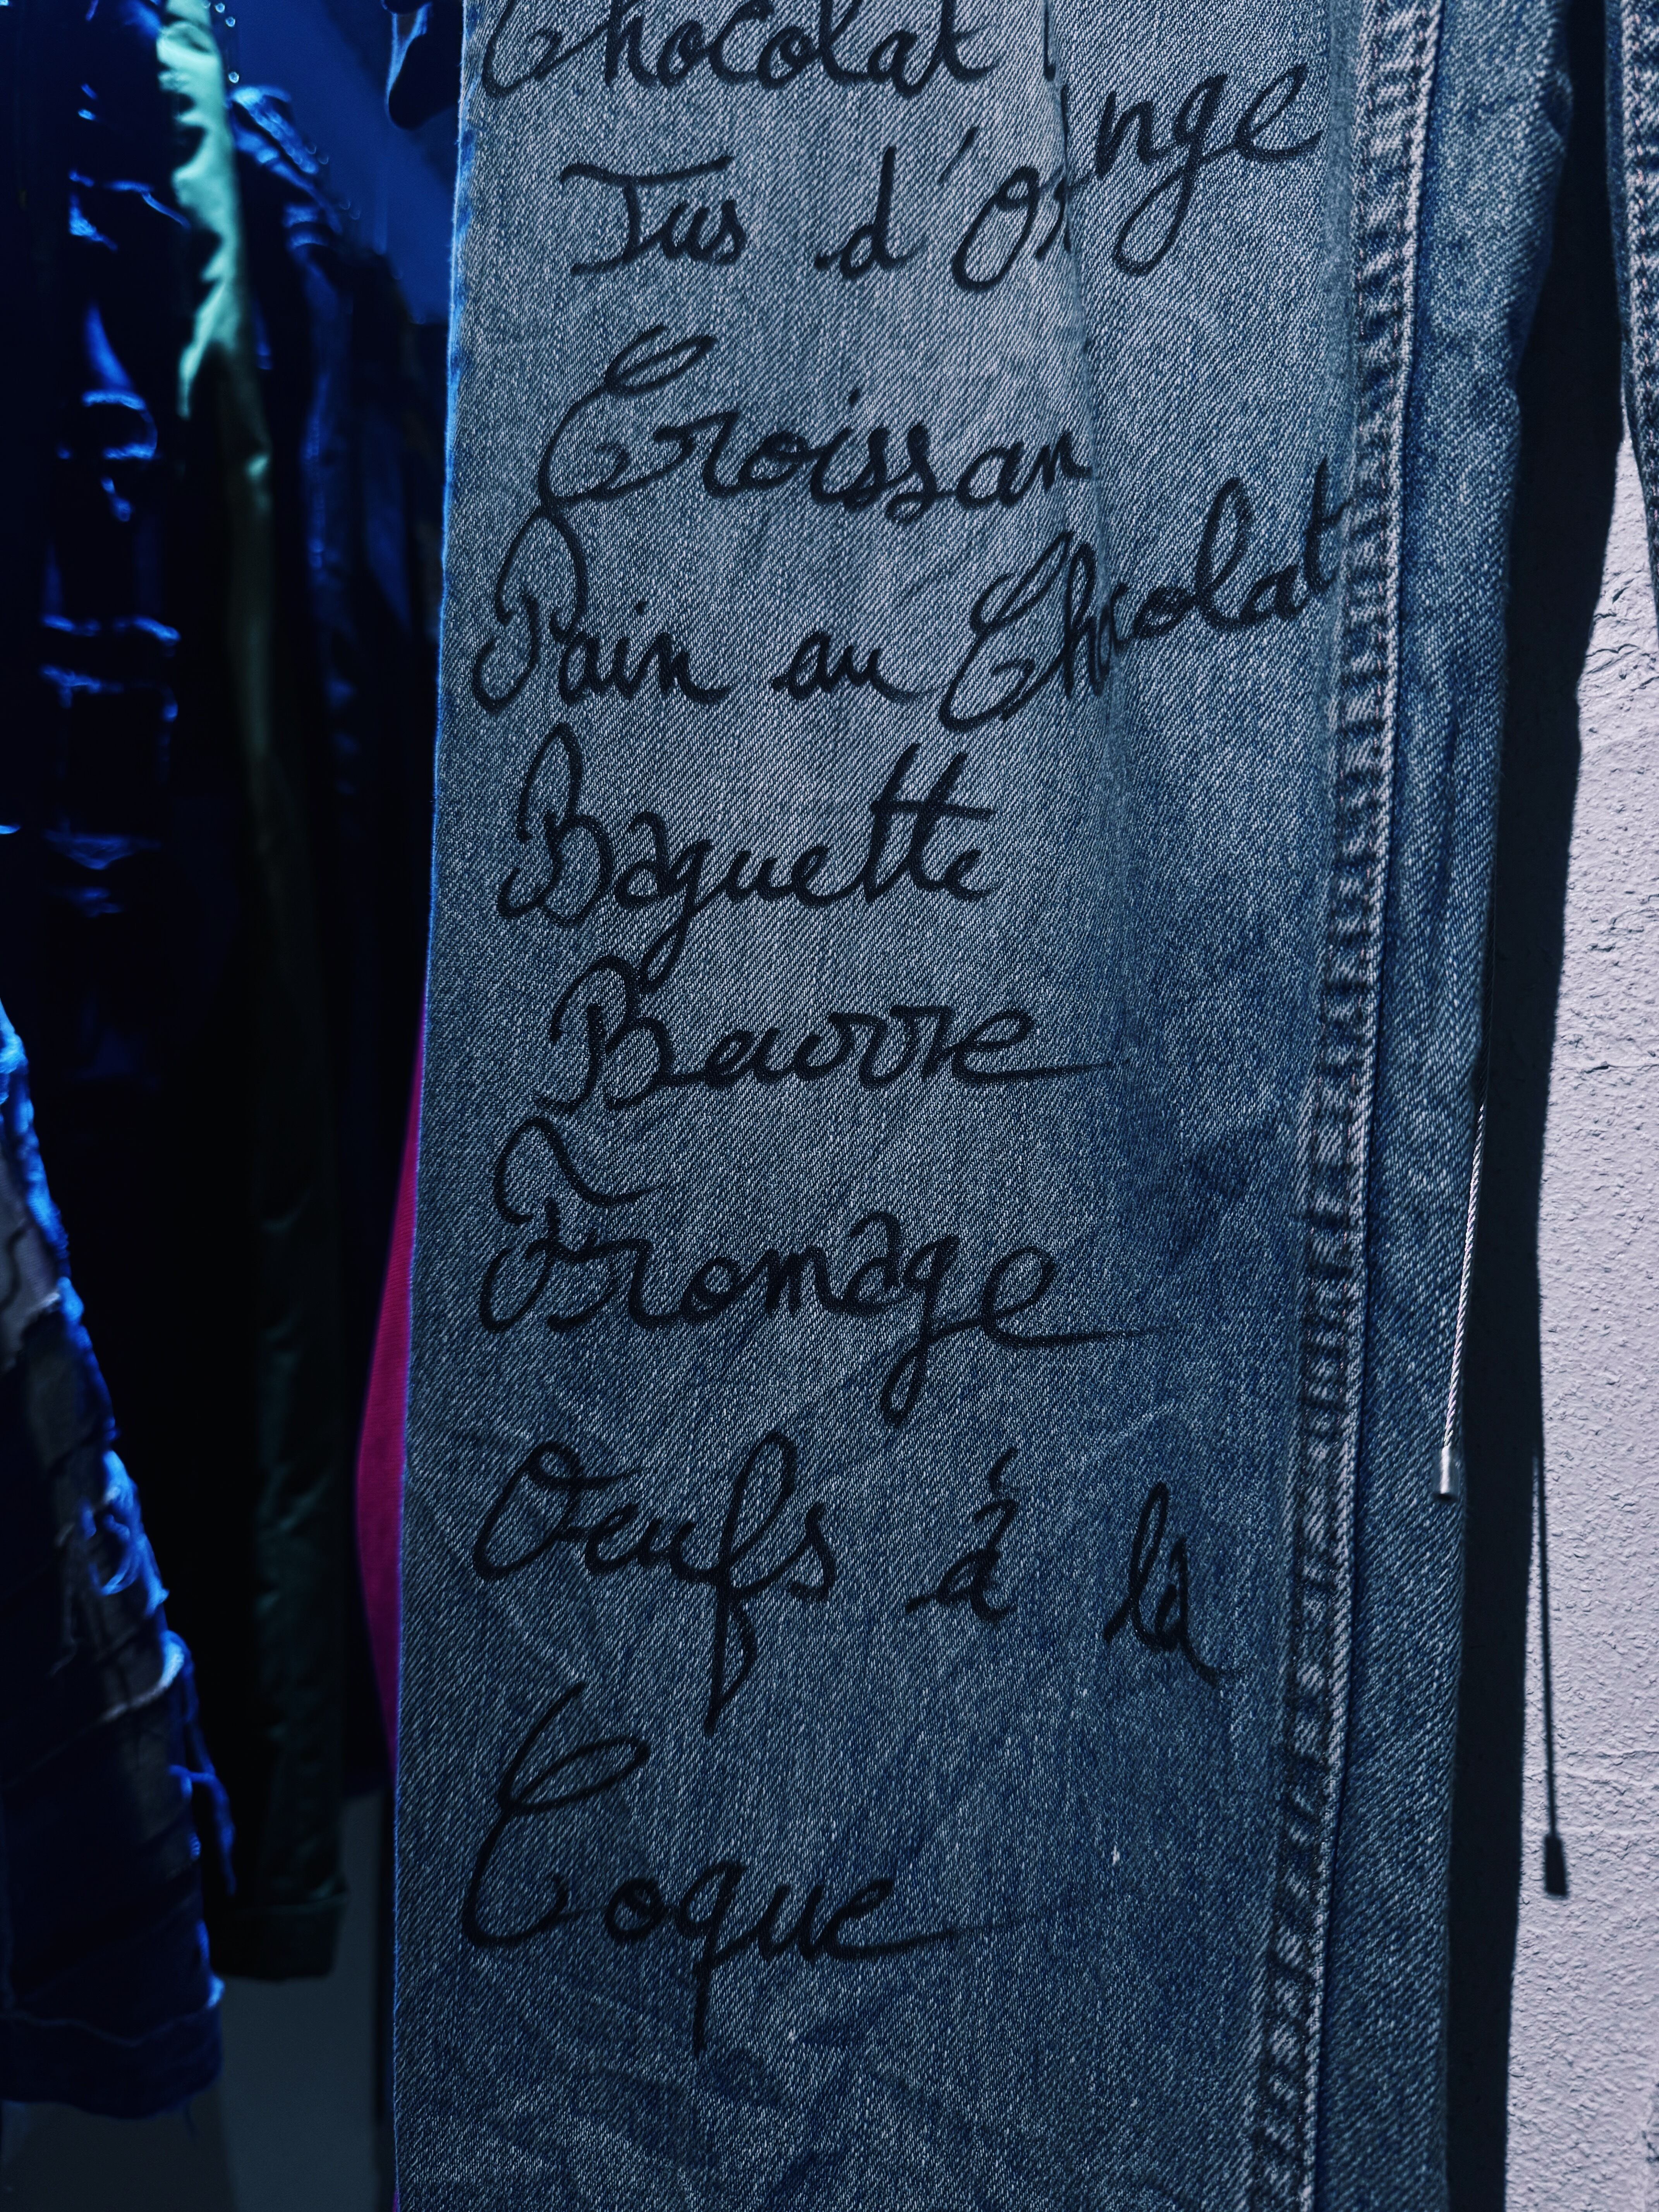 Chocolat
Jus d'Orange
Croissan
Pain au Chocolat
Baguette
Beurre
Fromage
Oeufs à la
Coque